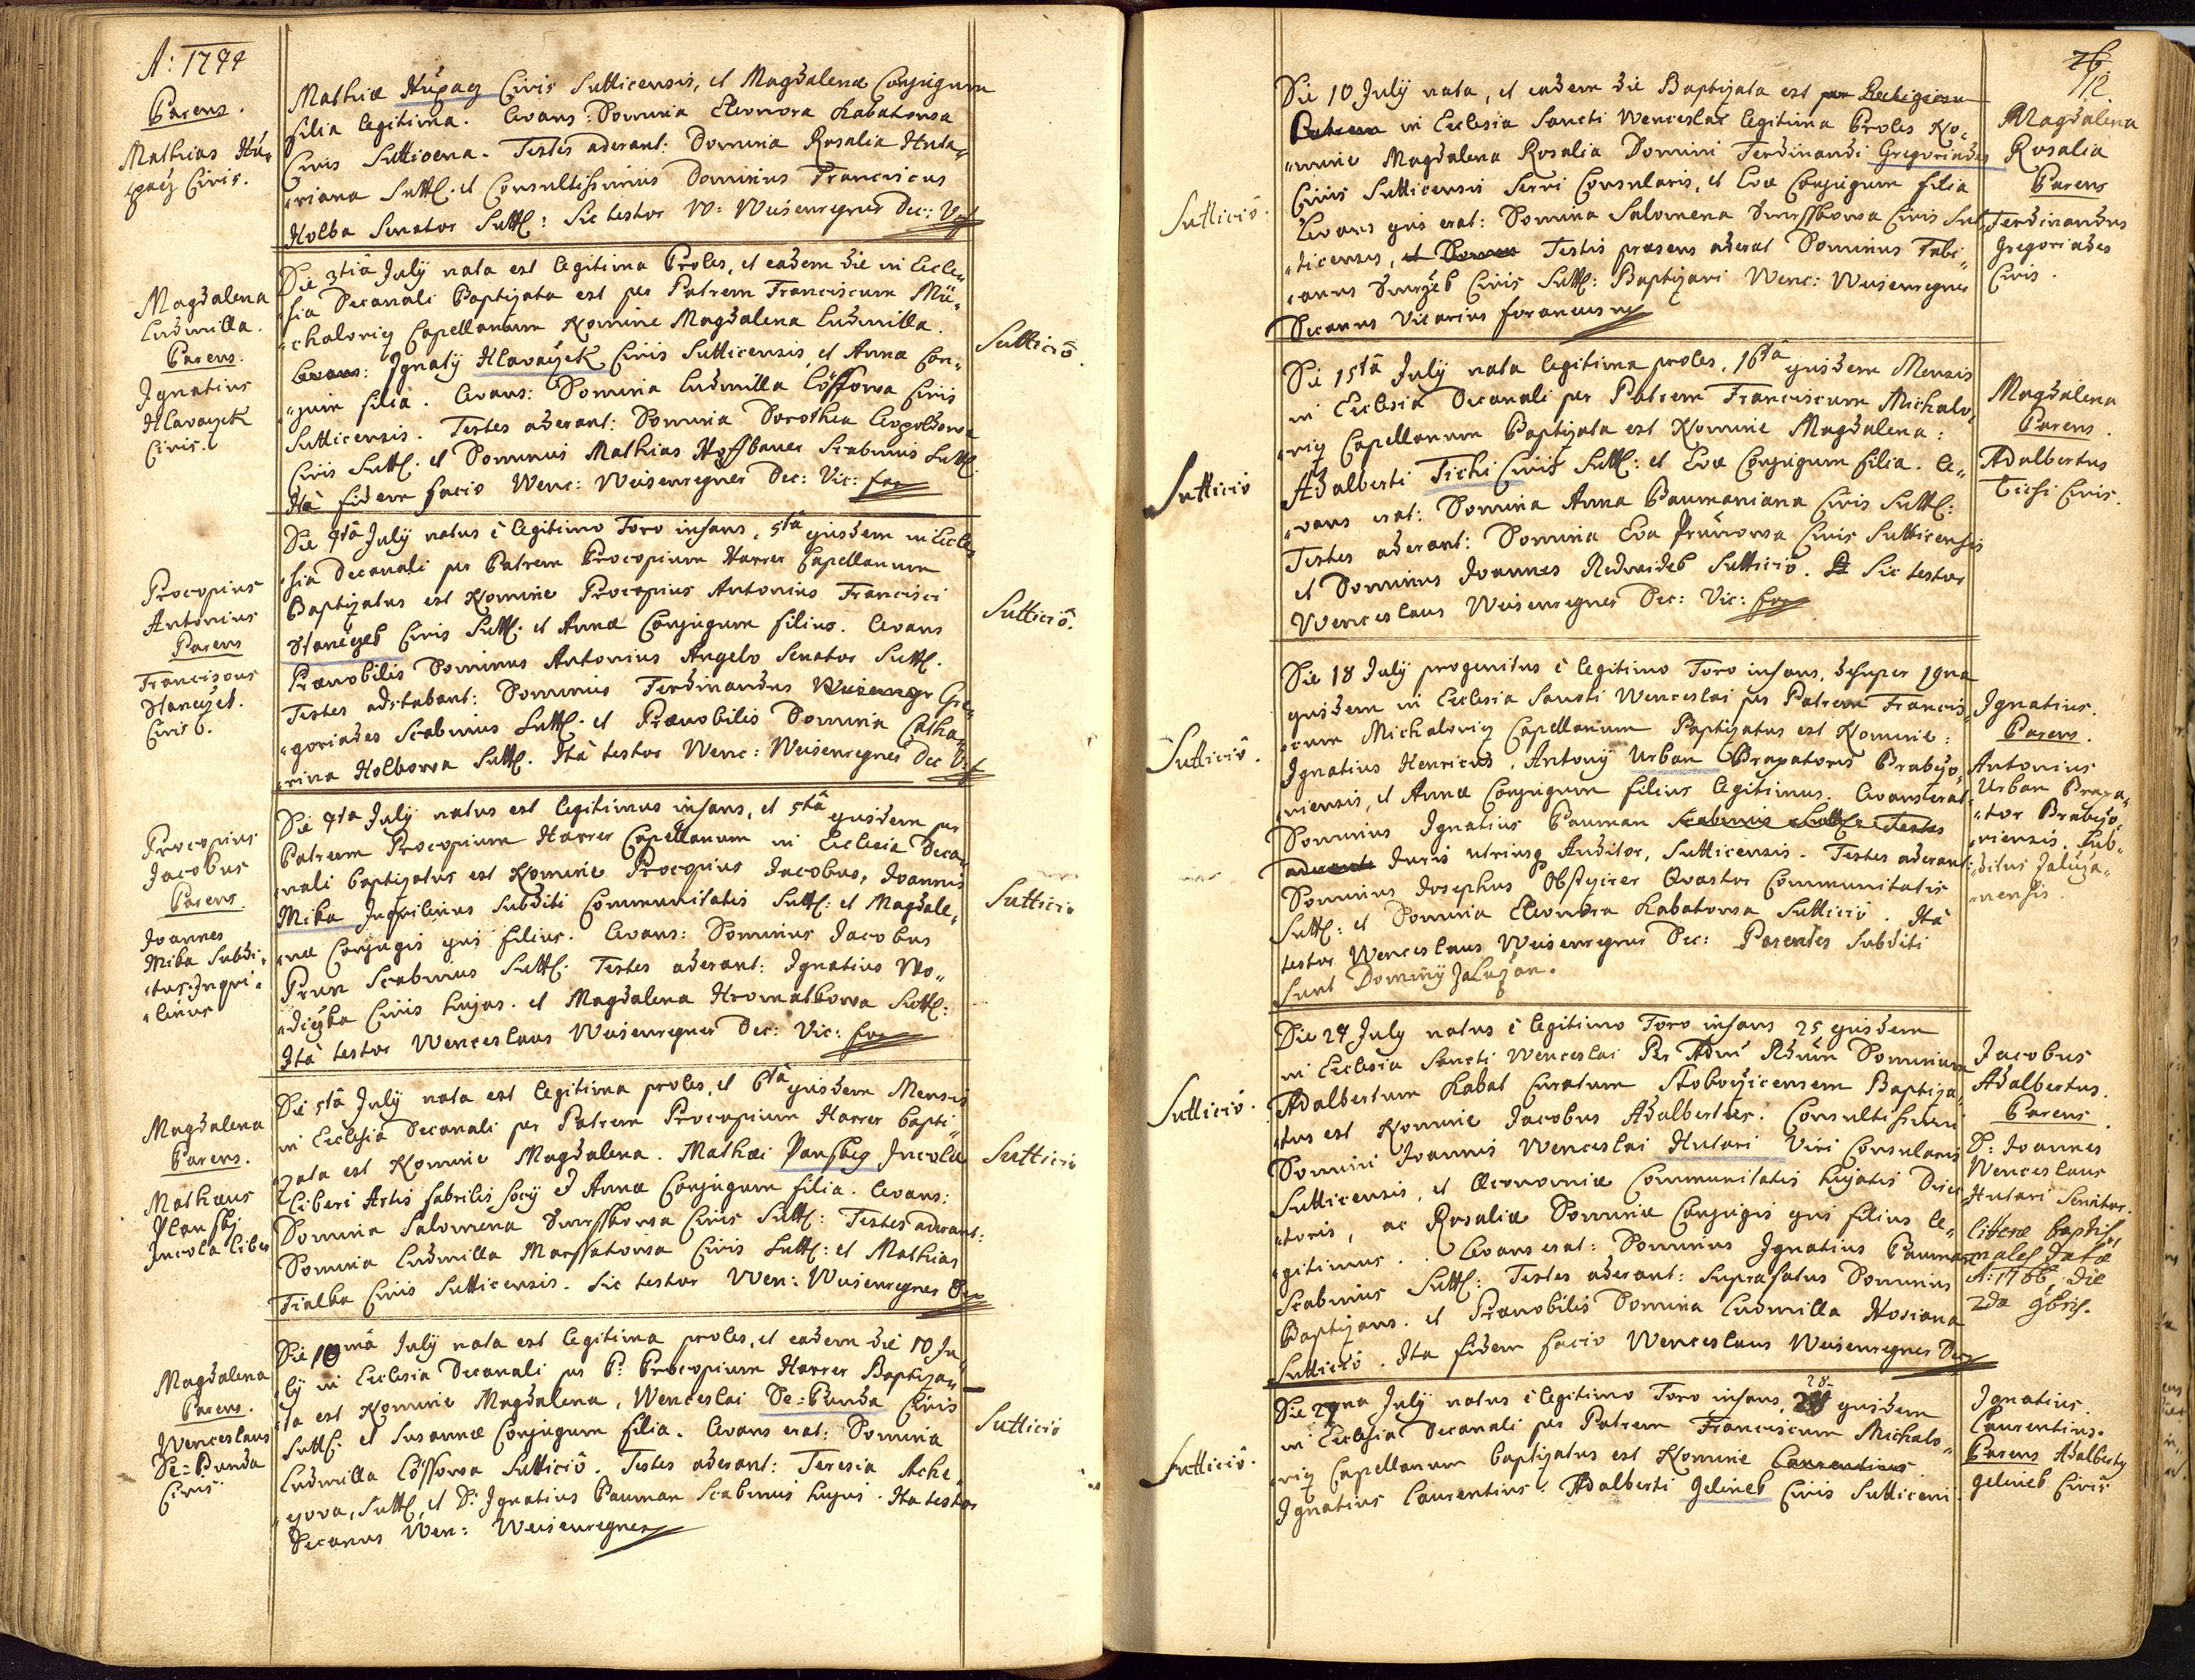 A: 1744
Parens.
Mathias Hu-
paɥ Civis.
Mathiæ Hupacz Civis Sutticensis, et Magdalenæ Conjugum
filia legitima. Levans: Domina Eleonora Kabatowa
Civis Sutticena. Testes aderant: Domina Rosalia Huta„
„riana Sutt. et Consultissimus Dominus Franciscus
Holba Senator Sutt: Sic testor W: Weisenregner Dec: V:f
Magdalena
Ludmilla.
Parens.
Ignatius
Hlavaczek
Civis.
Die 3tia July nata est legitima Proles, et eadem die in Eccle„
„sia Decanali Baptizata est per Patrem Franciscum Mi„
„chalovicz Capellanum Nomine Magdalena Ludmilla.
Levans: Ignatÿ Hlavaczek Civis Sutticensis, et Annæ Con„
„jum filia. Levans: Domina Ludmilla Lössowa Civis
Sutticensis. Testes aderant: Domina Dorothea Leopoldowa
Civis Sutt. et Dominus Mathias Hoffbauer Scabinus Sutt.
Ita fidem facio Wenc: Weisenregner Dec: Vic: for
Sutticio.
Procopius
Antonius
Parens
Franciscus
Staneczek.
Civis.
Die 4ta July natus è legitimo Toro infans, 5ta ejusdem in Eccle„
„sia Decanali per Patrem Procopium Harrer Capellanum
Baptizatus est Nomine Procopius Antonius Francisci
Staneczek Civis Sutt. et Annæ Conjugum filius. Levans
Prænobilis Dominus Antonius Angelo Senator Sutt.
Testes adstabant: Dominus Ferdinandus Weisenregr Gre„
„goriades Scabinus Sutt. et Prænobilis Domina Catha„
„rina Holbowa Sutt. Ità testor Wenc: Weisenregner Dec V:f
Sutticio.
Procopius
Jacobus
Parens.
Joannes
Mika Subdi„
„tus Inqui„
„linus
Die 4ta July natus est legitimus infans, et 5ta ejusdem per
Patrem Procopium Harrer Capellanum in Ecclesia Deca„
„nali baptizatus est Nomine Procopius Jacobus, Joannis
Mika Inquilinus Subditi Communitatis Sutt: et Magdale„
„næ Conjugis ejus filius. Levans: Dominus Jacobus
Prun Scabinus Sutt. Testes aderant: Ignatius Wo„
„diczka Civis hujas. et Magdalena Hromatkowa Sutt:
Ità testor Wenceslaus Weisenregner Dec: Vic: for
Sutticio
Magdalena
Parens.
Mathæus
Planskj
Incola Liber
Die 5ta July nata est legitima proles, et 6ta ejusdem Mensis
in Ecclesia Decanali per Patrem Procopium Harrer bapti„
„zata est Nomine Magdalena. Mathæi Planskej Incolæ
Liberi Artis fabrilis Socÿ et Annæ Conjugum filia. Levans:
Domina Salomena Smrsskowa Civis Sutt: Testes aderant:
Domina Ludmilla Marssatowa Civis Sutt: et Mathias
Fialka Civis Sutticensis. Sic testor Wen: Weisenregner Dec
Sutticio
Magdalena
Parens.
Wenceslaus
De-Punda
Civis
Die 10ma July nata est legitima proles, et eadem die 10 Ju„
„lÿ in Ecclesia Decanali per P: Procopium Harrer Baptiza„
„ta est Nomine Magdalena, Wenceslai De-Punda Civis
Sutt. et Susannæ Conjugum filia. Levans erat: Domina
Ludmilla Lössowa Sutticio. Testes aderant: Teresia Ache„
„rova, Sutt, et D: Ignatius Pauman Scabinus hujus. Ita testor
Decanus Wen: Weisenregner
Sutticio
26
12
Sutticio.
Die 10 July nata, et eadem die Baptizata est per Religiosum
Patrem in Ecclesia Sancti Wenceslai legitima Proles No„
„mine Magdalena Rosalia Domini Ferdinandi Gregoriades
Civis Sutticensis Servi Consularis, et Evæ Conjugum filia
Levans ejus erat: Domina Salomena Smrsskowa Civis Sut„
„ticensis, et Domin Testis præsens aderat Dominus Fabi„
„anus Smrżek Civis Sutt: Baptizavi Wenc: Weisenregner
Decanus Vicarius foraneus
Magdalena
Rosalia
Parens
Ferdinandus
Gregoriades
Civis.
Sutticio
Die 15ta July nata legitima proles, 16ta ejusdem Mensis
in Ecclesia Decanali per Patrem Franciscum Michalo„
„vicz Capellanum Baptizata est Nomine Magdalena:
Adalberti Tichi Civis Sutt: et Evæ Conjugum filia. Le„
„vans erat: Domina Anna Paumaniana Civis Sutt:
Testes aderant: Domina Eva Prunowa Civis Sutticensis
et Dominus Joannes Nedwidek Sutticio. Sic testor
Wenceslaus Weisenregner Dec: Vic: for
Magdalena
Parens.
Adalbertus
Tichi Civis.
Sutticio.
Die 18 July progenitus è legitimo Toro infans, desuper 19na
ejusdem in Ecclesia Sancti Wenceslai per Patrem Francis„
„cum Michalovicz Capellanum Baptizatus est Nomine:
Ignatius Henricus. Antonÿ Urban Braxatoris Prabijo„
„niensis, et Annæ Conjugum filius legitimus. Levans erat
Dominus Ignatius Pauman Scabinus Sutt: Testes
aderant Juris utriusq Auditor, Sutticensis. Testes aderant:
Dominus Josephus Obstzirer Quæstor Communitatis
Sutt: et Domina Eleonora Kabatowa Sutticio. Ità
testor Wenceslaus Weisenregner Dec: Parentes Subditi
sunt Dominÿ Zaluzan.
Ignatius.
Parens.
Antonius
Urban Braxa„
„tor Prabijo„
„niensis. Sub„
„ditus Zaluża„
„nensis.
Sutticio.
Die 24 July natus è legitimo Toro infans 25 ejusdem
in Ecclesia Sancti Wenceslai Per Admo Rdum Dominum
Adalbertum Kabat Curatum Stoborzicensem Baptiza„
„tus est Nomine Jacobus Adalbertus. Consultissimi
Domini Joannis Wenceslai Hutari Viri Consularis
Sutticensis, et Œconomiæ Communitatis hujatis Direc„
„toris, ac Rosaliæ Dominæ Conjugis ejus filius le„
„gitimus. Levans erat: Dominus Ignatius Pauman
Scabinus Sutt: Testes aderant: Suprafatus Dominus
Baptizans. et Prænobilis Domina Ludmilla Nosiana
Sutticio. Ita fidem facio Wenceslaus Weisenregner Dec
Jacobus
Adalbertus.
Parens.
D: Joannes
Wenceslaus
Hutari Senitor.
litteræ baptis„
males datæ
A: 1766, die
2da 9bris.
Sutticio.
Die 27ma July natus è legitimo Toro infans, 28 ejusdem
in Ecclesia Decanali per Patrem Franciscum Michalo„
„vicz Capellanum baptizatus est Nomine Laurentius
Ignatius Laurentius: Adalberti Jelinek Civis Sutticeni
Ignatius.
Laurentius.
Parens Adalbertÿ
Jelinek Civis